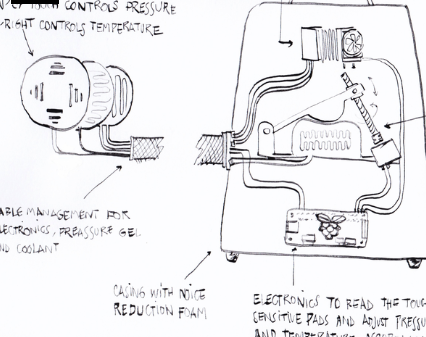 CONTROLS PRESSURE
RIGHT CONTROLS TEMPERATURE
ABLE MANAGEMENT FOR
LECTRONICS, PREASSURE GEL
ND COOLANT
CASING WITH NOICE
REDUCTION FOAM
ELECTRONICS TO READ THE TOUC
SENSITIVE PADS AND ADJUST PRESSU
AND TEMPERATURE